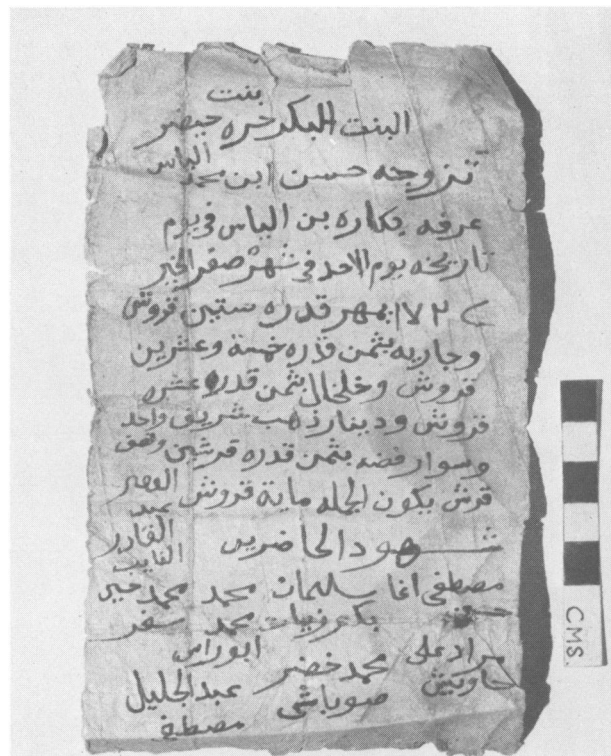 بنت
البنت البكر حره خيضر
تزوجه حسن ابن محمد الباس
عرفه بكاره بن الباس في يوم
تاريخه يوم الاحد في شهر صفر الخير
بمهر قدره ستين قروش
وجاريه بثمن قدره خمسة وعشرين
قروش وخلخال بثمن قدره عشره
قروش ودينار ذهب شريفي واحد
وسوار فضه بثمن قدره قرشين ونصف
قرش يكون الجمله ماية قروش الفقير
عبد
القادر
النايب
شهود الحاضرين
مصطفى اغا سليمان محمد محمد خير
محمد سفر
ابوراس
مراد علي محمد خضر عبد الجليل
جاويش صوباشي مصطفى
CMS.